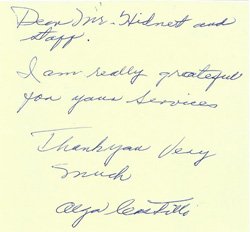 Dear Mr. Hidnett and
staff.
I am really grateful
for your services
Thankyou Very
much
Olga Castillo